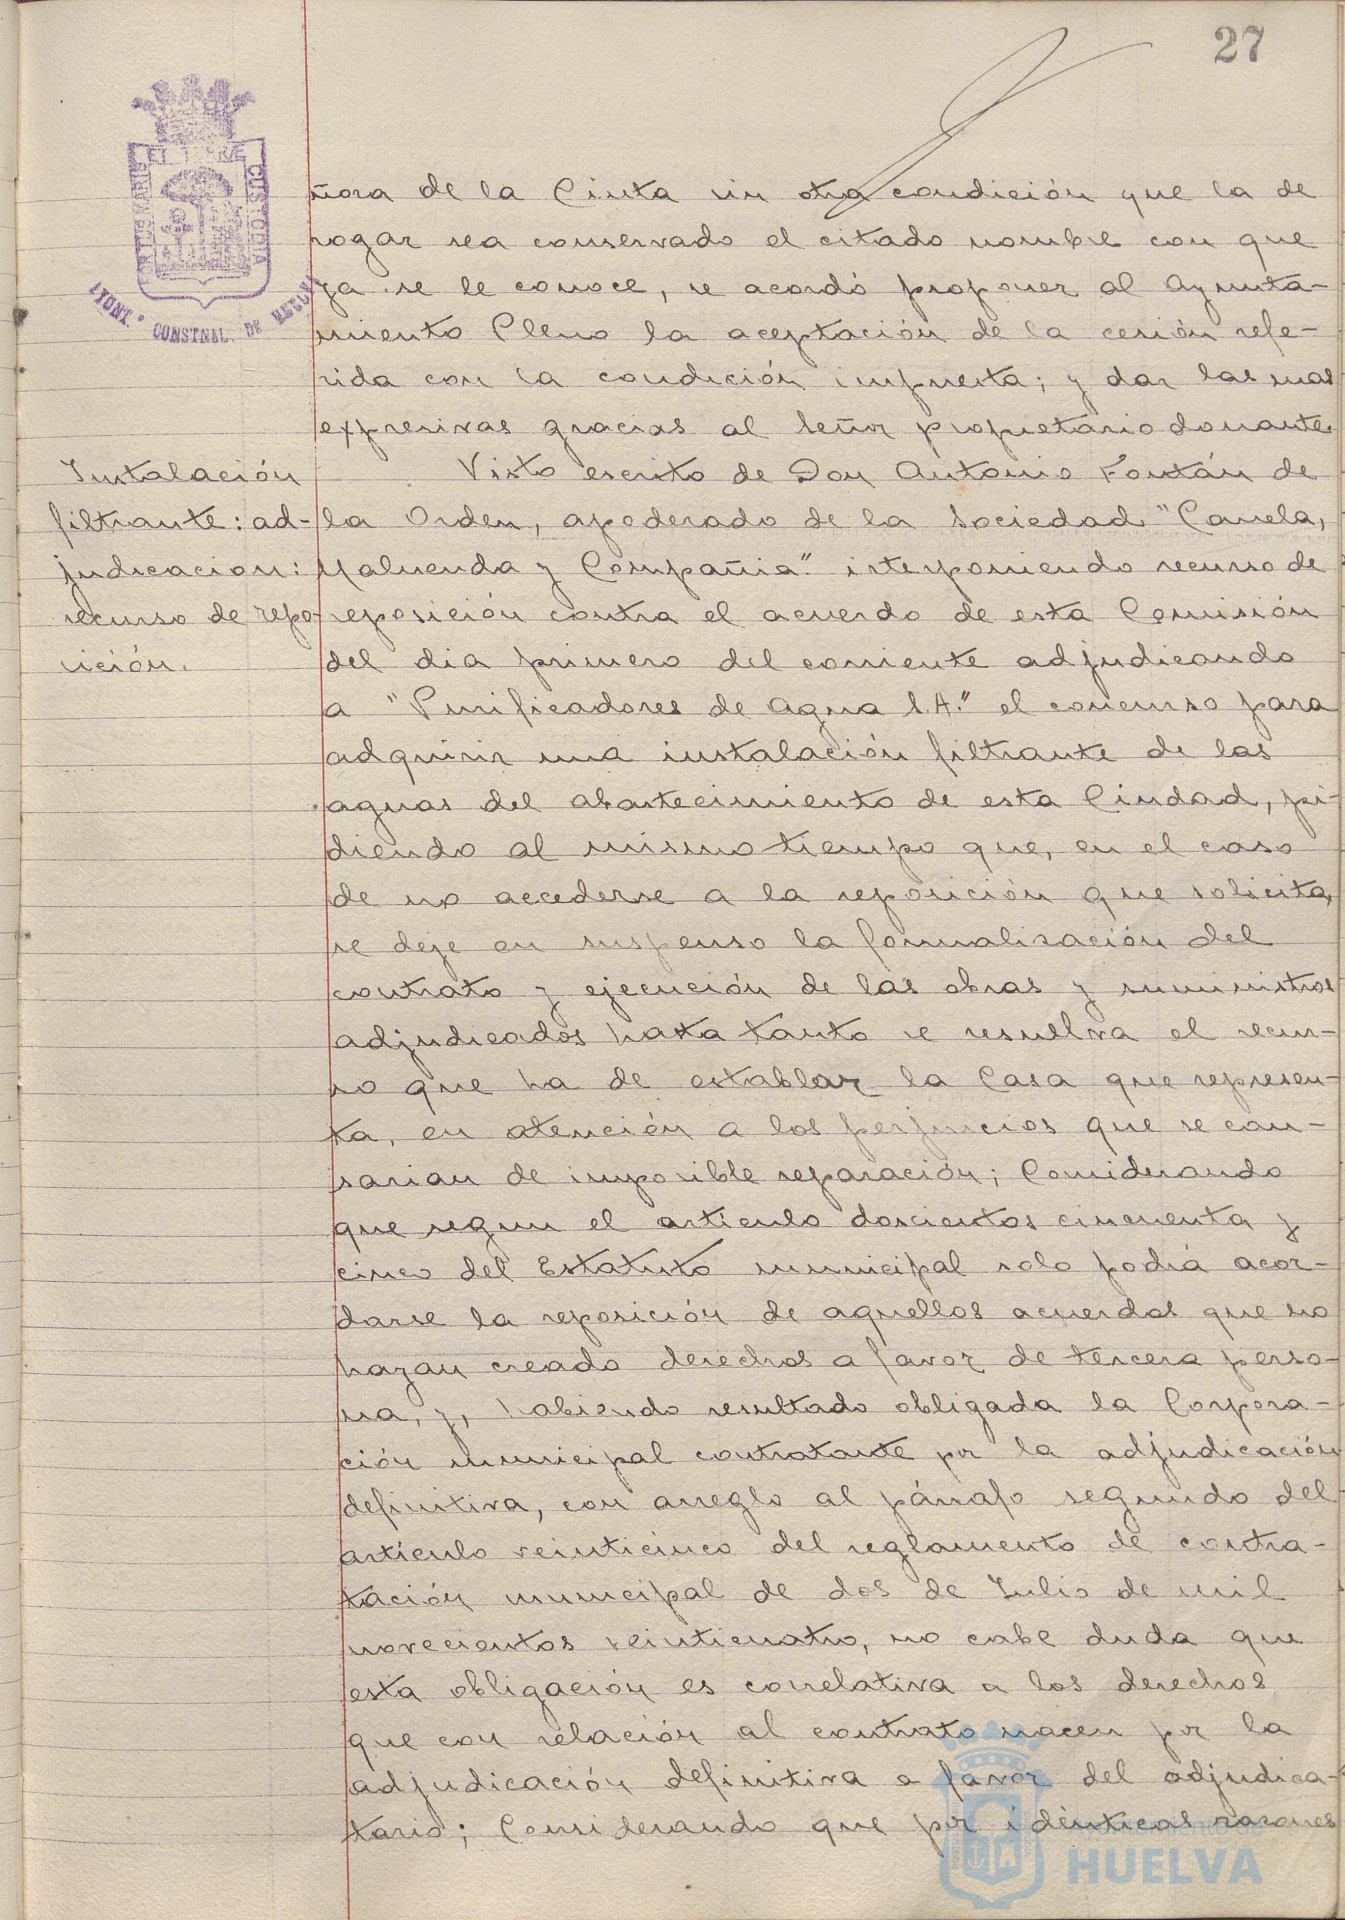 27
PORTUS MARIS ET TERRE CUSTODIA
AYONT. CONSTNAL. DE HUELVA
ñora de la Cinta sin otra condición que la de
rogar sea conservado el citado nombre con que
ya se le conoce, se acordó proponer al Ayunta-
miento Pleno la aceptación de la cesión refe-
rida con la condición impuesta; y dar las mas
expresivas gracias al señor propietario donante.
Instalación
filtrante: ad-
judicacion:
recurso de repo-
sición.
Visto escrito de Don Antonio Fontán de
la Orden, apoderado de la Sociedad "Canela,
Maluenda y Compañia" interponiendo recurso de
reposición contra el acuerdo de esta Comisión
del dia primero del corriente adjudicando
a "Purificadores de Agua S.A." el concurso para
adquirir una instalación filtrante de las
aguas del abastecimiento de esta Ciudad, pi-
diendo al mismo tiempo que, en el caso
de no accederse a la reposición que solicita,
se deje en suspenso la formalización del
contrato y ejecución de las obras y suministros
adjudicados hasta tanto se resuelva el recur-
so que ha de establar la Casa que represen-
ta, en atención a los perjuicios que se cau-
sarian de imposible reparación; Considerando
que segun el artículo doscientos cincuenta y
cinco del Estatuto municipal solo podrá acor-
darse la reposición de aquellos acuerdos que no
hayan creado derechos a favor de tercera perso-
na, y, habiendo resultado obligada la Corpora-
ción municipal contratante por la adjudicación
definitiva, con arreglo al párrafo segundo del
artículo veinticinco del reglamento de contra-
tación municipal de dos de Julio de mil
novecientos veinticuatro, no cabe duda que
esta obligación es correlativa a los derechos
que con relación al contrato nacen por la
adjudicación definitiva a favor del adjudica-
tario; Considerando que por idénticas razones
Ayuntamiento de
HUELVA